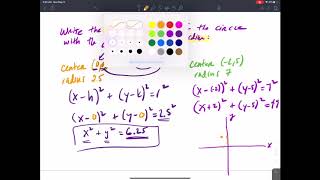 Write the
the circle
with the
center
radius 2.5
(x-h)² + (y-k)² = r²
(x-0)² + (y-0)² = 2.5²
x² + y² = 6.25
center (-2,5)
radius 7
(x-(-2))² + (y-5)² = 7²
(x+2)² + (y-5)² = 49
y
x